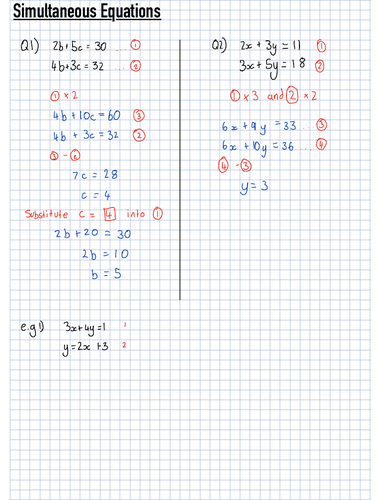 Simultaneous Equations
Q1) 2b+5c = 30 ... ①
4b+3c = 32 ... ②
① × 2
4b + 10c = 60 ③
4b + 3c = 32 ②
③ - ②
7c = 28
c = 4
Substitute c = 4 into ①
2b + 20 = 30
2b = 10
b = 5
Q2) 2x + 3y = 11 ①
3x + 5y = 18 ②
① × 3 and ② × 2
6x + 9y = 33 ... ③
6x + 10y = 36 ... ④
④ - ③
y = 3
e.g1) 3x+4y=1 1
y=2x+3 2